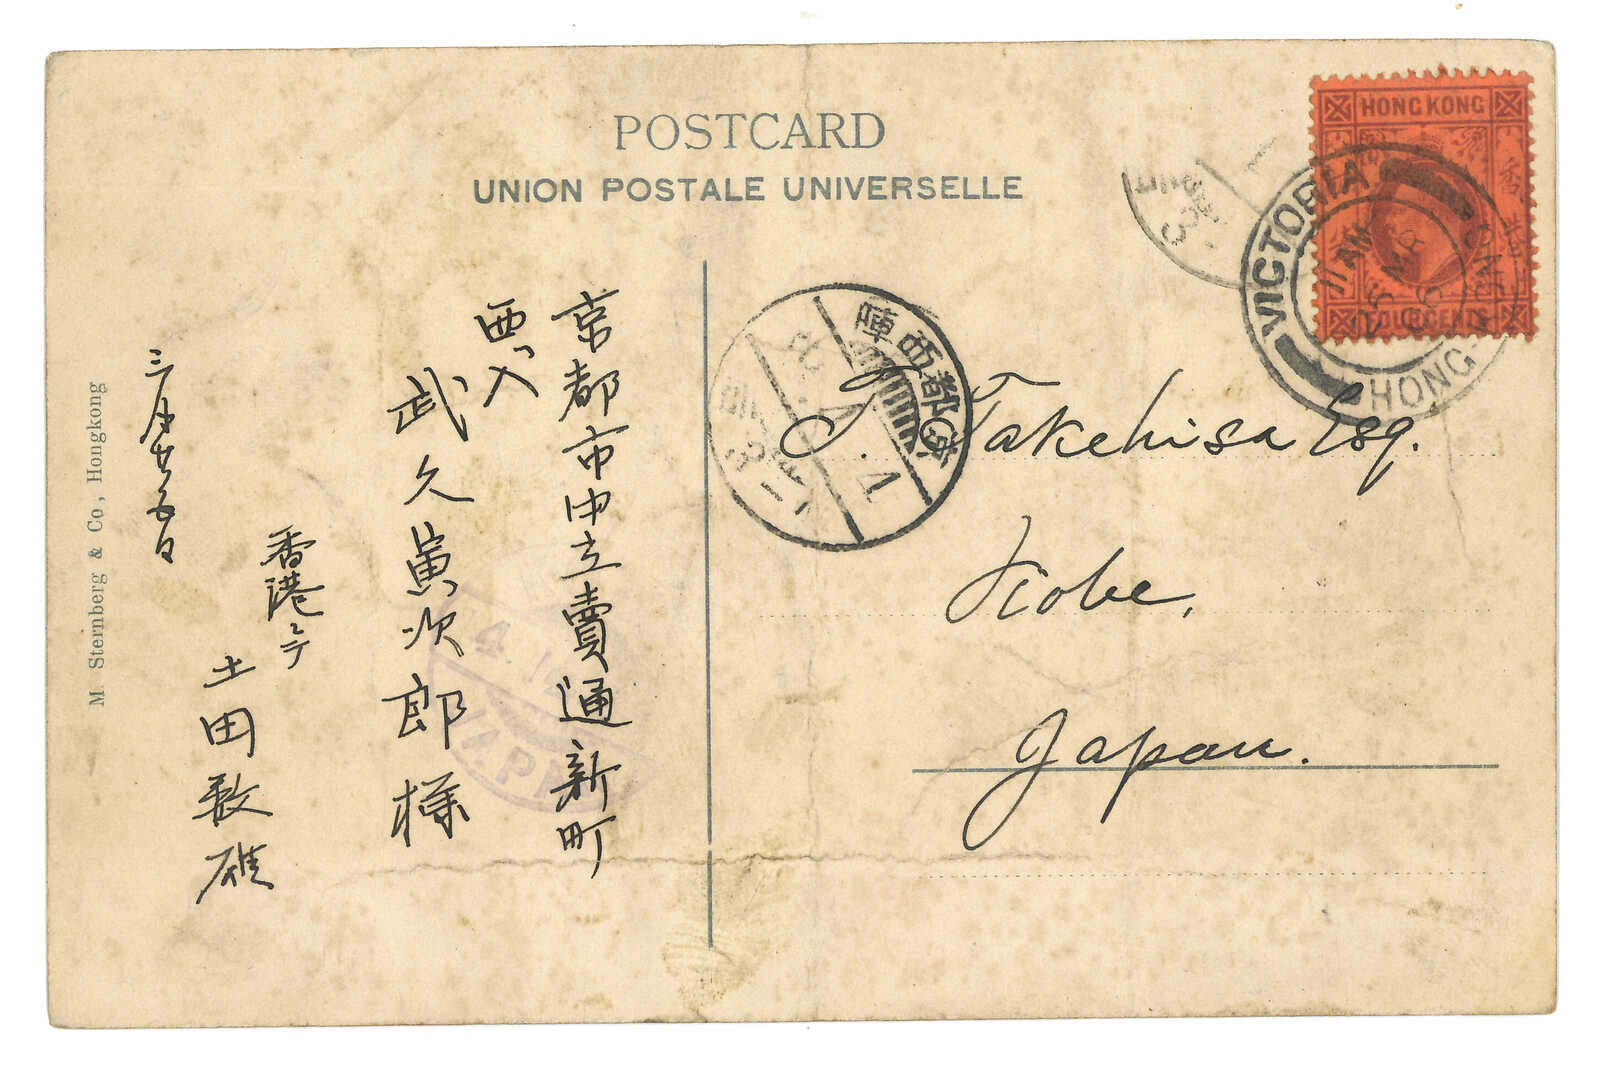 POSTCARD
UNION POSTALE UNIVERSELLE
HONG KONG
香港
FOUR CENTS
VICTORIA
HONG-KONG
11 AM
25 MR
06
京都西陣
T. Takehisa Esq.
Kobe,
Japan.
京都市中立賣通新町
西入
武久寅次郎様
香港ニテ
土田
三月廿五日
M. Sternberg & Co, Hongkong